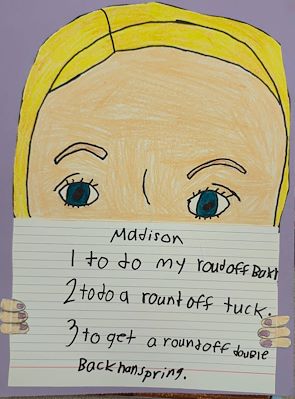 Madison
1 to do my roudoff Bakh
2 todo a rount off tuck.
3 to get a roundoff double
Backhanspring.